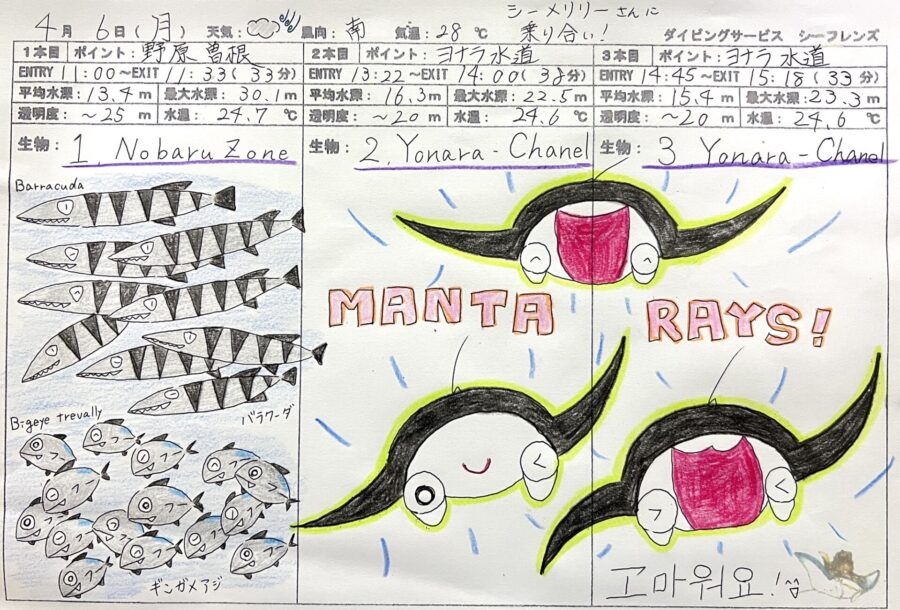 4月 6日(月) 天気: 風向: 南 気温: 28 ℃ シーメリリーさんに
乗り合い! ダイビングサービス シーフレンズ
1本目 ポイント: 野原曽根
ENTRY 11:00~EXIT 11:33(33分)
平均水深: 13.4m 最大水深: 30.1m
透明度: ~25m 水温: 24.7 ℃
生物: 1. Nobaru Zone
Barracuda
バラクーダ
Bigeye trevally
ギンガメアジ
2本目 ポイント: ヨナラ水道
ENTRY 13:22~EXIT 14:00(38分)
平均水深: 16.3m 最大水深: 22.5m
透明度: ~20m 水温: 24.6 ℃
生物: 2. Yonara-Chanel
3本目 ポイント: ヨナラ水道
ENTRY 14:45~EXIT 15:18(33分)
平均水深: 15.4m 最大水深: 23.3m
透明度: ~20m 水温: 24.6 ℃
生物: 3 Yonara-Chanel
MANTA RAYS!
고마워요!^^